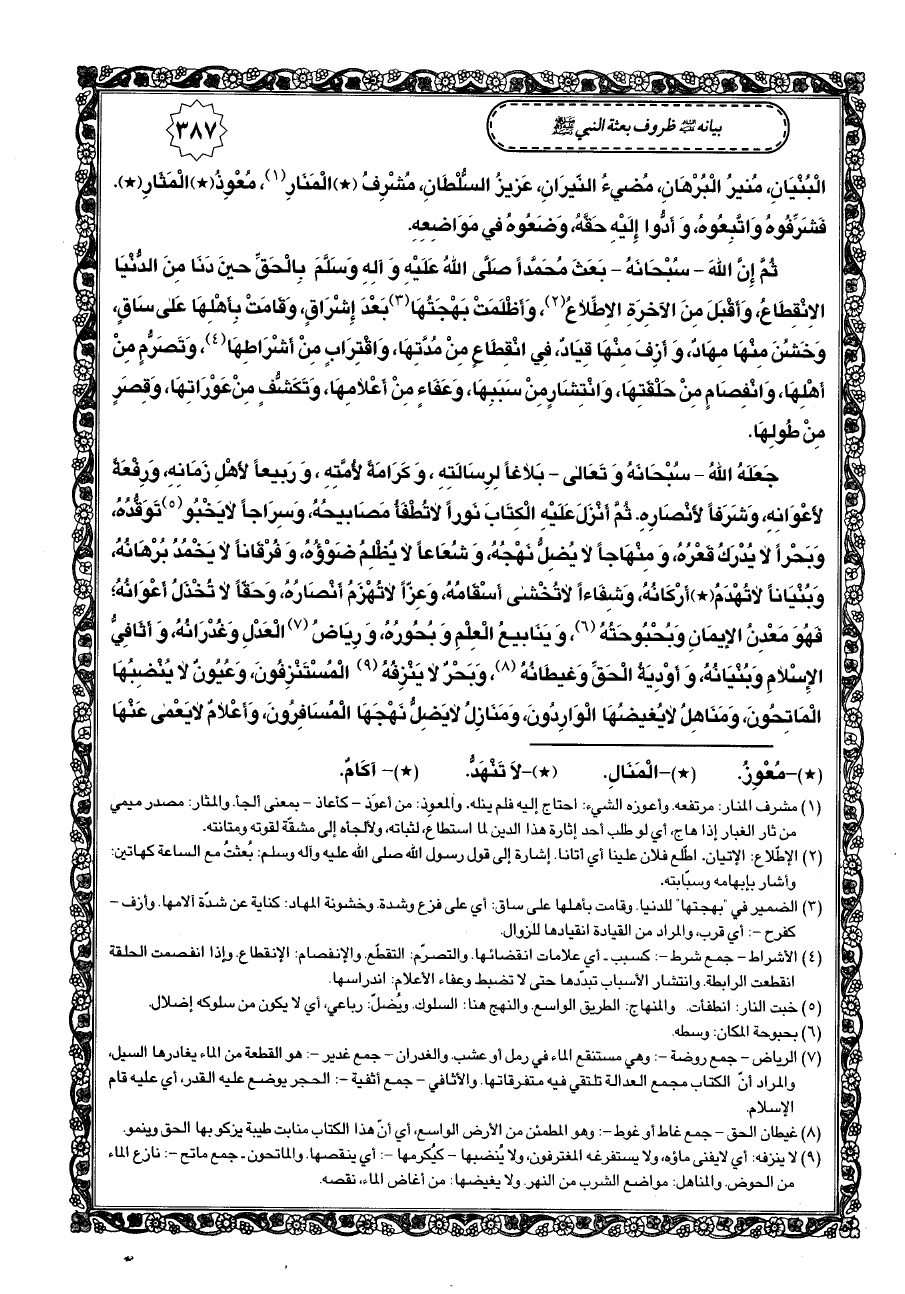 بيانه عليه السلام ظروف بعثة النبي ﷺ
٣٨٧
الْبُنْيَانِ، مُنيرُ الْبُرْهَانِ، مُضيءُ النّيرَانِ، عَزيزُ السُّلْطَانِ، مُشْرِفُ (★)الْمَنَارِ(١)، مُعْوِذُ(★)الْمَثَارِ(★).
فَشَرِّفُوهُ وَاتَّبِعُوهُ، وَ أَدُّوا إِلَيْهِ حَقَّهُ، وَضَعُوهُ في مَوَاضِعِهِ.
ثُمَّ إِنَّ اللهَ - سُبْحَانَهُ - بَعَثَ مُحَمَّداً صَلَّى اللهُ عَلَيْهِ وَ آلِهِ وَسَلَّمَ بِالْحَقِّ حينَ دَنَا مِنَ الدُّنْيَا
الاِنْقِطَاعُ، وَأَقْبَلَ مِنَ الآخِرَةِ الاِطِّلاَعُ(٢)، وَأَظْلَمَتْ بَهْجَتُهَا(٣)بَعْدَ إِشْرَاقٍ، وَقَامَتْ بِأَهْلِهَا عَلى سَاقٍ،
وَخَشُنَ مِنْهَا مِهَادٌ، وَ أَزِفَ مِنْهَا قِيَادٌ، في انْقِطَاعٍ مِنْ مُدَّتِهَا، وَاقْتِرَابٍ مِنْ أَشْرَاطِهَا(٤)، وَتَصَرُّمٍ مِنْ
أَهْلِهَا، وَانْفِصَامٍ مِنْ حَلْقَتِهَا، وَانْتِشَارٍ مِنْ سَبَبِهَا، وَعَفَاءٍ مِنْ أَعْلاَمِهَا، وَتَكَشُّفٍ مِنْ عَوْرَاتِهَا، وَقِصَرٍ
مِنْ طُولِهَا.
جَعَلَهُ اللهُ - سُبْحَانَهُ وَ تَعَالى - بَلاَغاً لِرِسَالَتِهِ ، وَ كَرَامَةً لأُمَّتِهِ ، وَ رَبيعاً لأَهْلِ زَمَانِهِ، وَرِفْعَةً
لأَعْوَانِهِ، وَشَرَفاً لأَنْصَارِهِ. ثُمَّ أَنْزَلَ عَلَيْهِ الْكِتَابَ نُوراً لاَتُطْفَأُ مَصَابيحُهُ، وَسِرَاجاً لاَيَخْبُو(٥)تَوَقُّدُهُ،
وَبَحْراً لاَ يُدْرَكُ قَعْرُهُ، وَ مِنْهَاجاً لاَ يُضِلُّ نَهْجُهُ، وَ شُعَاعاً لاَ يُظْلِمُ ضَوْؤُهُ، وَ فُرْقَاناً لاَ يَخْمُدُ بُرْهَانُهُ،
وَبُنْيَاناً لاَتُهْدَمُ(★)أَرْكَانُهُ، وَشِفَاءاً لاَتُخْشى أَسْقَامُهُ، وَعِزّاً لاَتُهْزَمُ أَنْصَارُهُ، وَحَقّاً لاَ تُخْذَلُ أَعْوَانُهُ؛
فَهُوَ مَعْدَنُ الإيمَانِ وَبُحْبُوحَتُهُ(٦)، وَ يَنَابيعُ الْعِلْمِ وَ بُحُورُهُ، وَ رِيَاضُ(٧)الْعَدْلِ وَغُدْرَانُهُ، وَ أَثَافِيُّ
الإِسْلاَمِ وَبُنْيَانُهُ، وَ أَوْدِيَةُ الْحَقِّ وَغيطَانُهُ(٨)، وَبَحْرٌ لاَ يَنْزِفُهُ(٩) الْمُسْتَنْزِفُونَ، وَعُيُونٌ لاَ يُنْضِبُهَا
الْمَاتِحُونَ، وَمَنَاهِلُ لاَيُغيضُهَا الْوَارِدُونَ، وَمَنَازِلُ لاَيَضِلُّ نَهْجَهَا الْمُسَافِرُونَ، وَأَعْلاَمٌ لاَيَعْمى عَنْهَا
(★)-مُعْوِزُ. (★)-الْمَنَالِ. (★)-لاَ تَنْهَدُّ. (★)- آكَامٌ.
(١) مشرف المنار: مرتفعه. وأعوزه الشيء: احتاج إليه فلم ينله. والمعوذ: من أعوَذ - كأعاذ - بمعنى ألجأ. والمثار: مصدر ميمي
من ثار الغبار إذا هاج، أي لو طلب أحد إثارة هذا الدين لما استطاع، لثباته، ولألجأه إلى مشقّة لقوته ومتانته.
(٢) الإطّلاع: الإتيان. اطّلع فلان علينا أي أتانا. إشارة إلى قول رسول الله صلى الله عليه وآله وسلم: بُعثتُ مع الساعة كهاتين:
وأشار بإبهامه وسبّابته.
(٣) الضمير في "بهجتها" للدنيا. وقامت بأهلها على ساق: أي على فزع وشدة. وخشونة المهاد: كناية عن شدّة آلامها. وأزف -
كفرح -: أي قرب، والمراد من القيادة انقيادها للزوال.
(٤) الأشراط - جمع شرط -: كسبب - أي علامات انقضائها. والتصرّم: التقطّع. والإنفصام: الإنقطاع. وإذا انفصمت الحلقة
انقطعت الرابطة. وانتشار الأسباب تبدّدها حتى لا تضبط وعفاء الأعلام: اندراسها.
(٥) خبت النار: انطفأت. والمنهاج: الطريق الواسع. والنهج هنا: السلوك. ويُضلّ: رباعي، أي لا يكون من سلوكه إضلال.
(٦) بحبوحة المكان: وسطه.
(٧) الرياض - جمع روضة -: وهي مستنقع الماء في رمل أو عشب. والغدران - جمع غدير -: هو القطعة من الماء يغادرها السيل،
والمراد أنّ الكتاب مجمع العدالة تلتقي فيه متفرقاتها. والأثافي - جمع أثفية -: الحجر يوضع عليه القدر، أي عليه قام
الإسلام.
(٨) غيطان الحق - جمع غاط أو غوط -: وهو المطمئن من الأرض الواسع، أي أنّ هذا الكتاب منابت طيبة يزكو بها الحق وينمو.
(٩) لا ينزفه: أي لايفنى ماؤه، ولا يستفرغه المغترفون، ولا يُنضبها - كيُكرمها -: أي ينقصها. والماتحون - جمع ماتح -: نازع الماء
من الحوض. والمناهل: مواضع الشرب من النهر. ولا يغيضها: من أغاض الماء، نقصه.